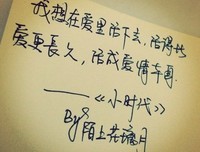 我想在爱里活下去，活得比
爱更長久，活成爱情本身
——《小时代》
By 陌上花满月